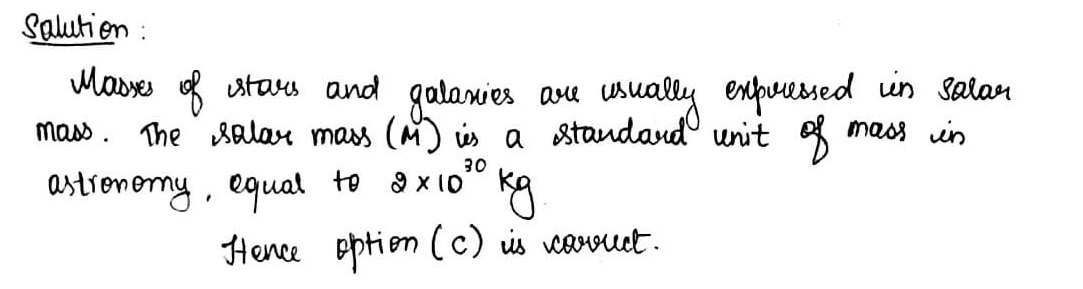 Solution :
Masses of stars and galaxies are usually expressed in solar
mass. The solar mass (M) is a standard unit of mass in
astronomy, equal to 2 × 10³⁰ kg
Hence option (c) is correct.